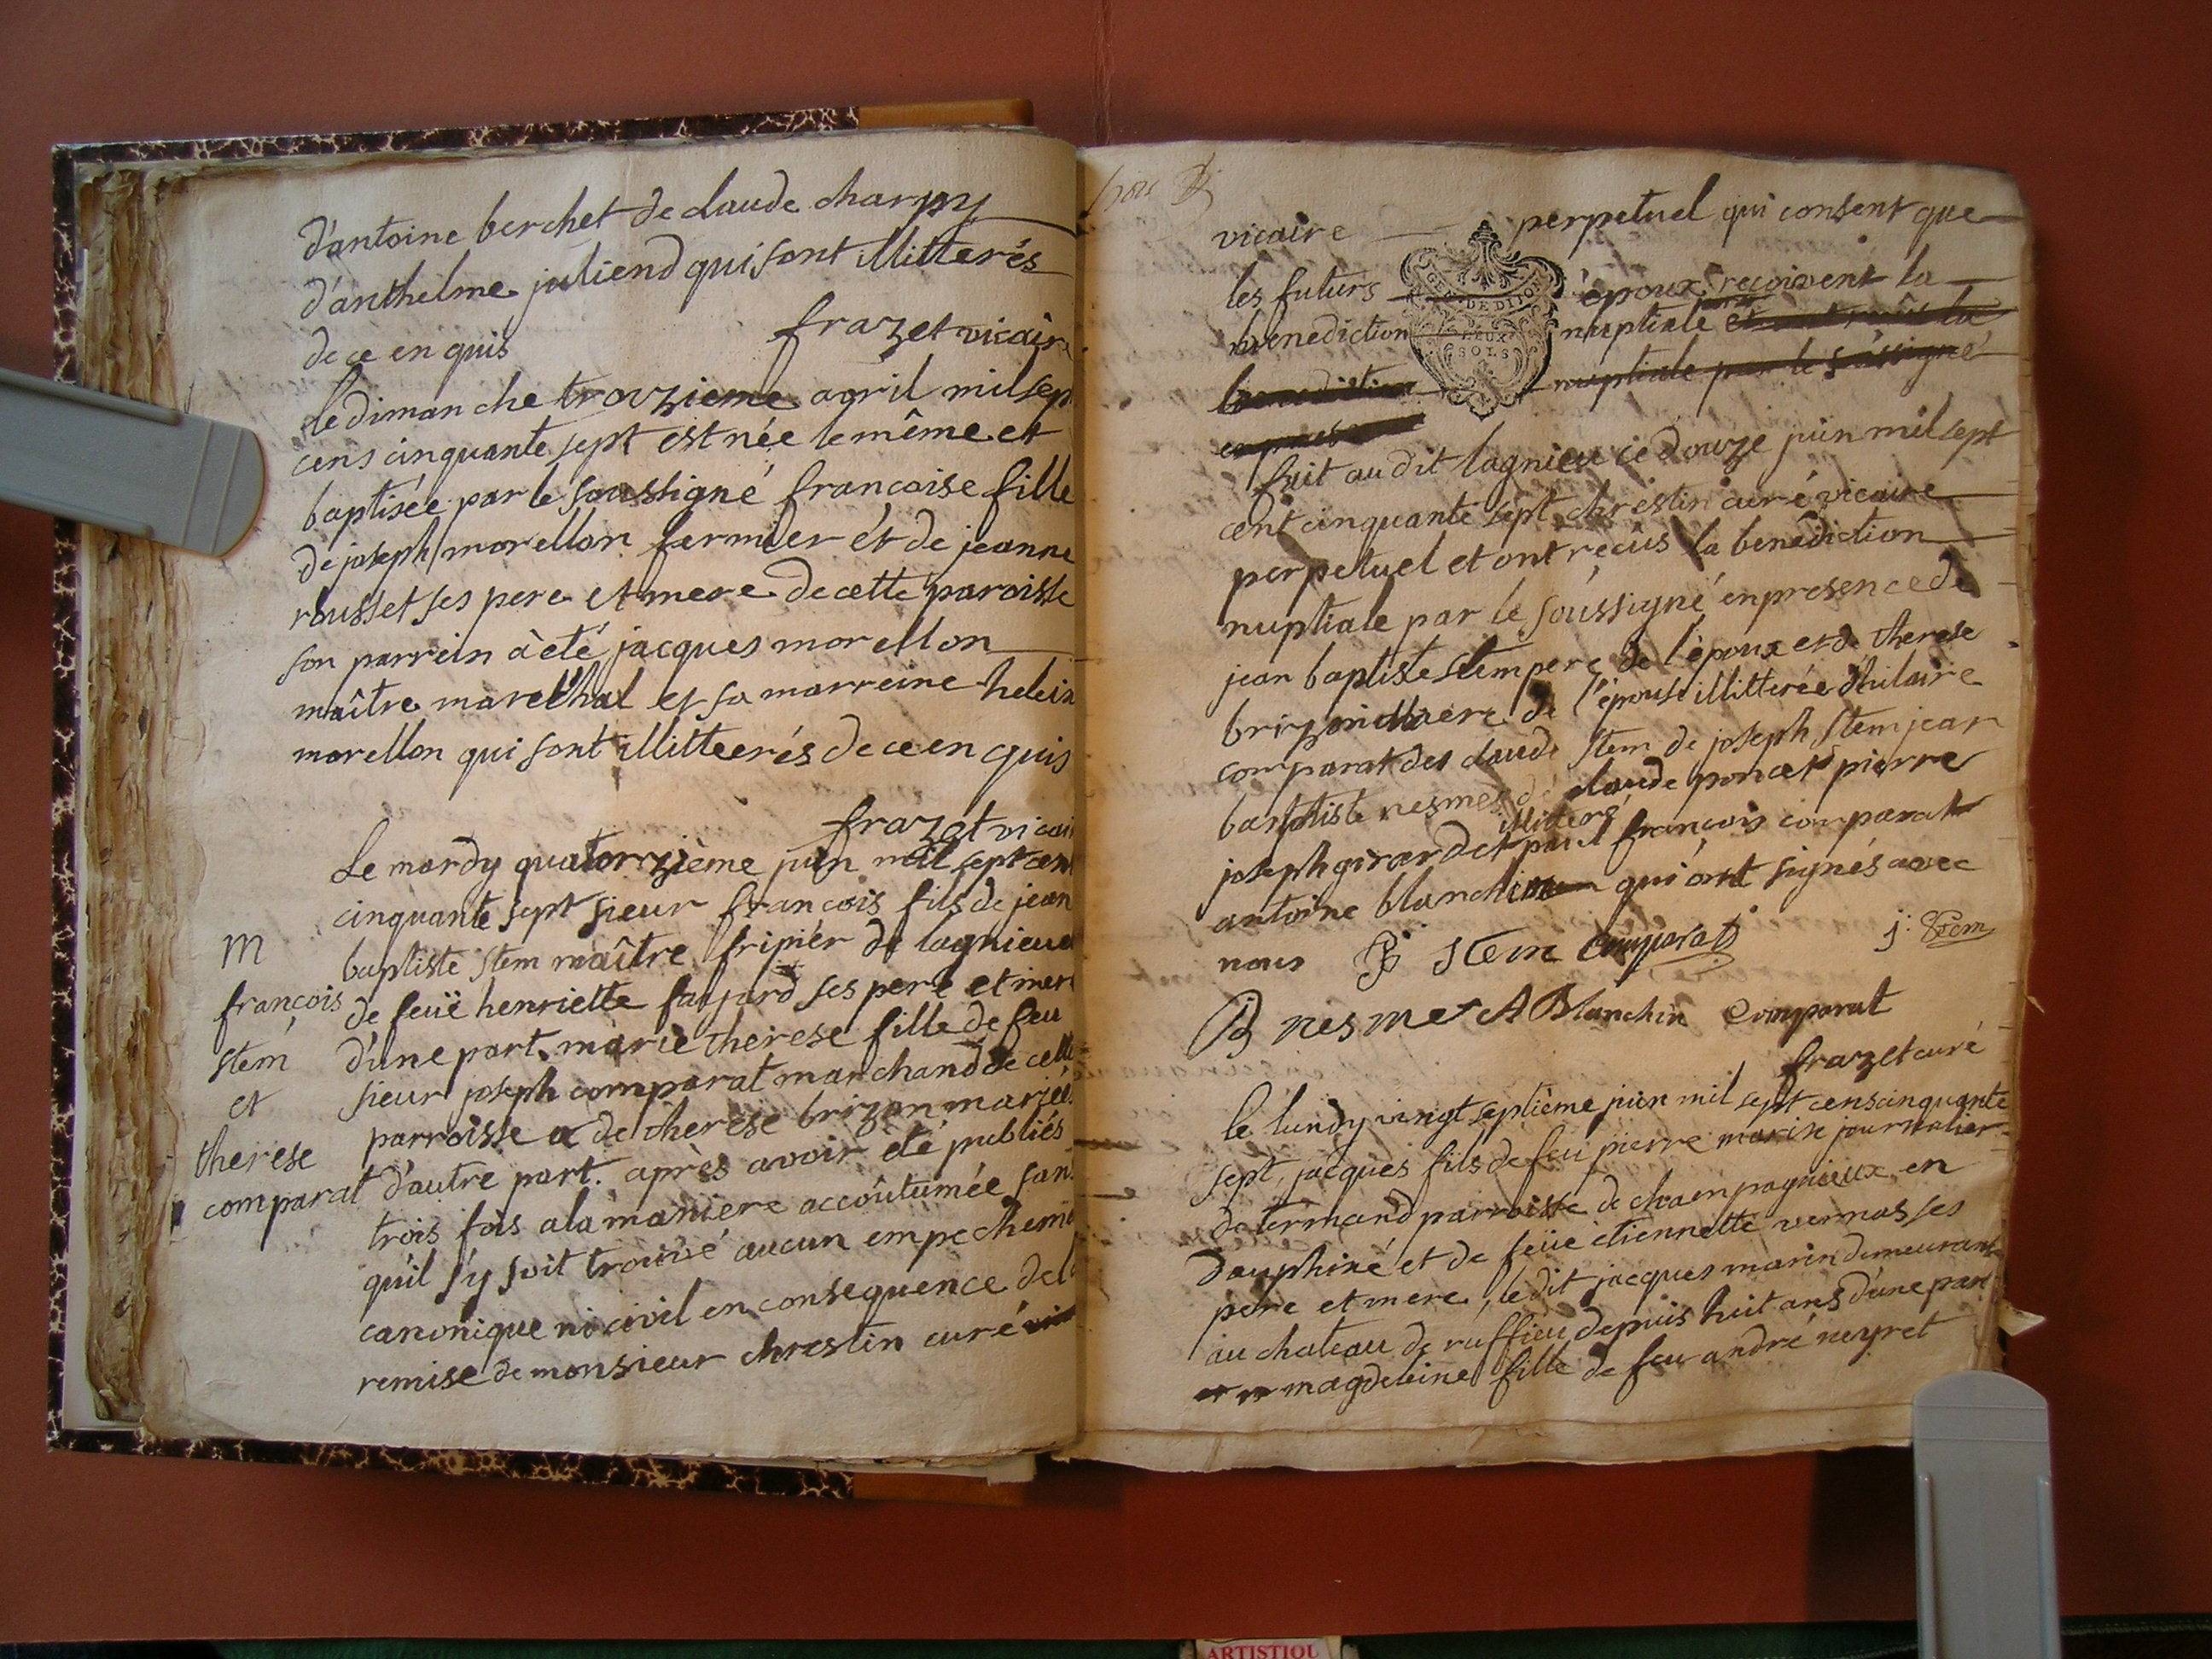 d'antoine berchet de claude charpy
d'anthelme juliend qui sont illitterés
de ce en quis
frazet vicaire
le dimanche trouzieme avril mil sep
cens cinquante sept est née le même et
baptisée par le soussigné francoise fille
de joseph morellon fermier et de jeanne
rousset ses pere et mere de cette paroisse
son parrein à été jacques morellon
maître marechal et sa marreine helein
morellon qui sont illitteerés de ce en quis
frazet vicai
Le mardy quatorzième juin mil sept cen
cinquante sept sieur françois fils de jean
baptiste stem maître fripier de lagnieu
de feuë henriette fayjard ses pere et mere
d'une part. marie therese fille de feu
sieur joseph comparat marchand de cette
parroisse et de therese brizon mariée
d'autre part. après avoir eté publiés
trois fois a la maniere accoûtumée san
qu'il s'y soit trouvé aucun empechem
canonique ni civil en consequence de l
remise de monsieur chrestin curé
M
françois
stem
et
therese
comparat
vicaire perpetuel qui consent que
les futurs époux reçoivent la
benediction nuptiale
nuptiale par le soussigné
GEN. DE DIJON
DEUX
SOLS
fait au dit lagnieu ce douze juin mil sept
cent cinquante sept chrestin curé vicaire
perpetuel et ont reçûs la benediction
nuptiale par le soússigné en presence de
jean baptiste stem pere de l'époux et de therese
brizon mere de l'épouse illitterée d'hilaire
comparat de claude stem de joseph stem jean
baptiste nesmes de claude poncet pierre
illiteré
joseph girardet paul françois comparat
antoine blanchin qui ont signés avec
nous B stem comparat j: stem
B nesme A Blanchin Comparat
frazet curé
le lundy vingt septième juin mil sept cens cinquante
sept, jacques fils de feu pierre marise journalier
de termand parroisse de chaempagnieux en
Dauphiné et de feüe etiennette vernas ses
pere et mere, le dit jacques marin demeurant
au chateau de ruffieu depuis huit ans d'une part
magdeleine fille de feu andré neyret
ARTISTIQU